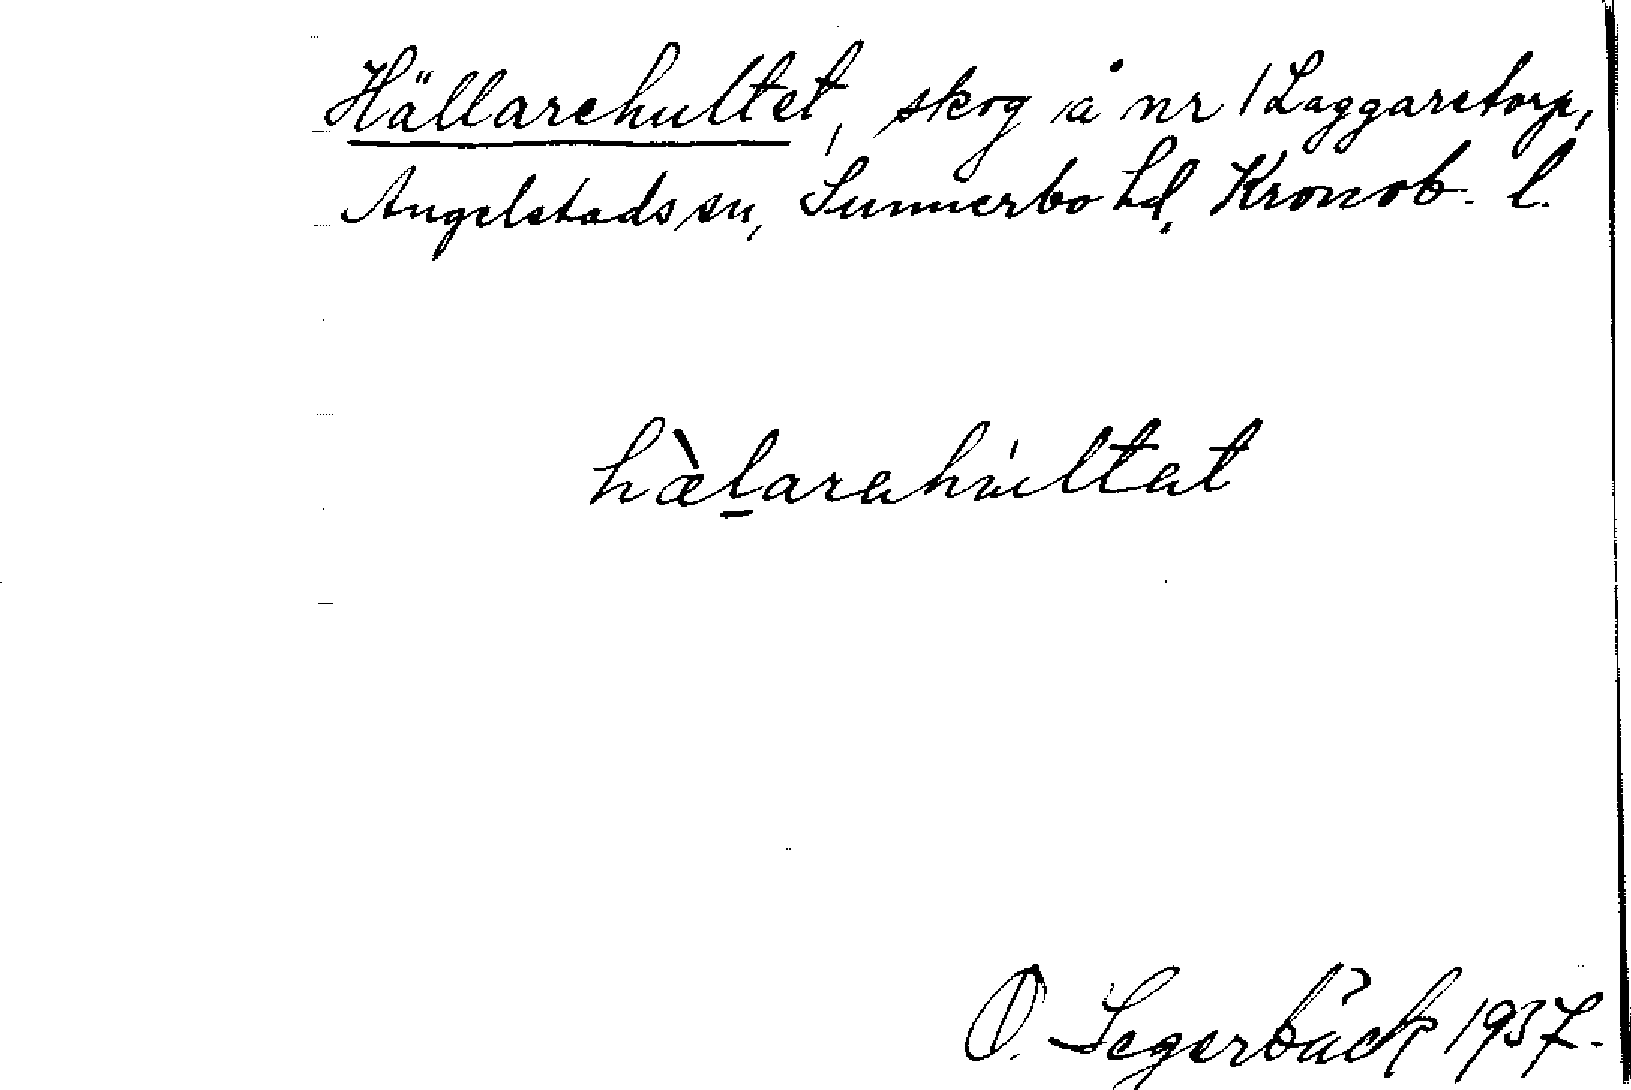 Hällarehultet, skog å nr 1 Laggaretorp,
Angelstads sn, Sunnerbo hd, Kronob. l.
hæ̀l̠arahu̍ltat
O. Segerbäck 1937.